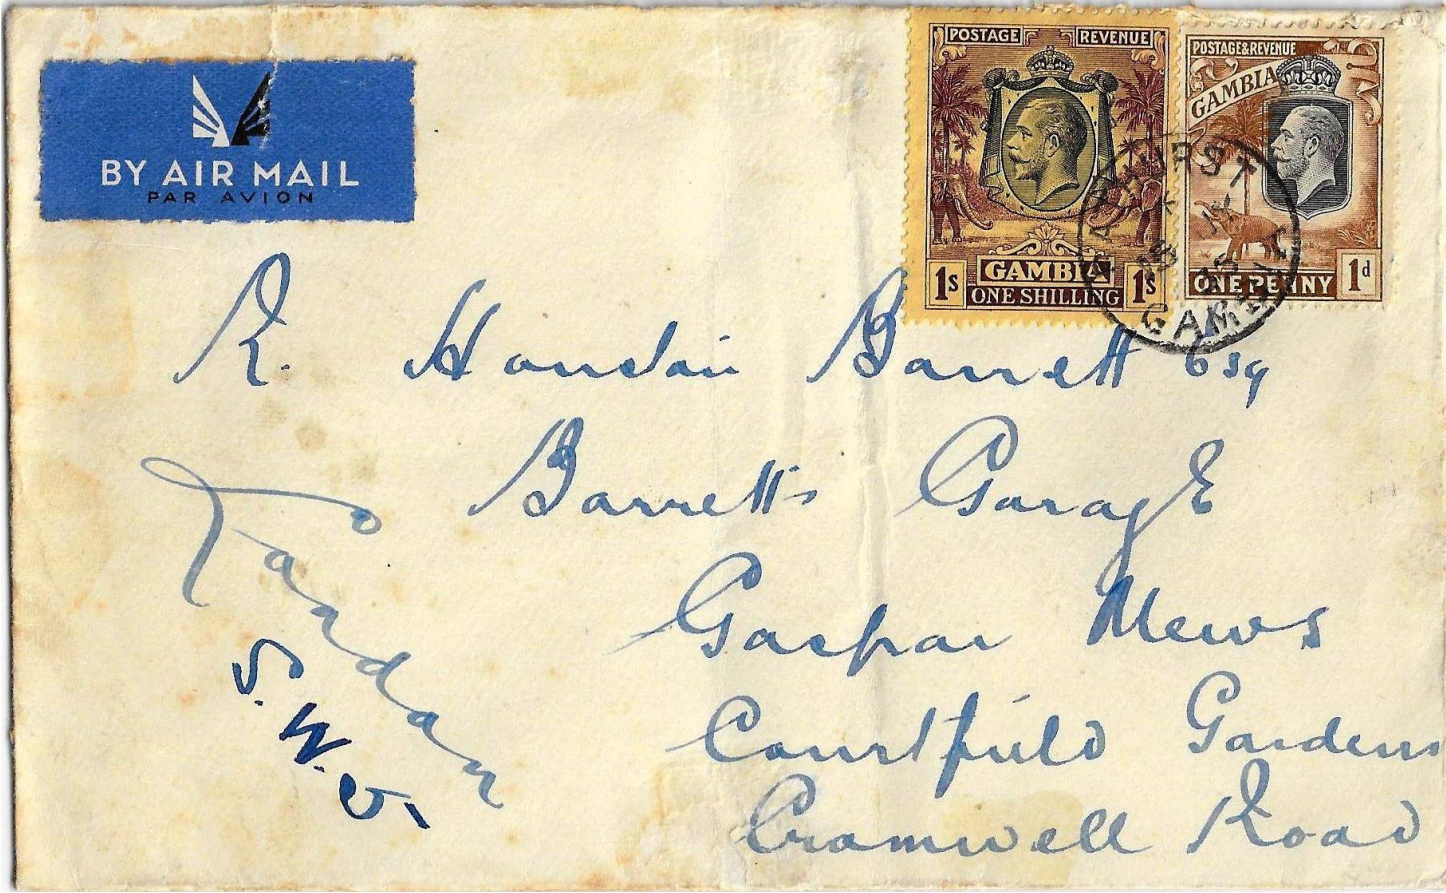 BY AIR MAIL
PAR AVION
POSTAGE REVENUE
GAMBIA
1s ONE SHILLING 1s
POSTAGE & REVENUE
GAMBIA
ONE PENNY 1d
BATHURST
GAMBIA
R. Barrett Esq
Barretts Garage
Gaspar Mews
Courtfield Gardens
Cromwell Road
London
S.W.5